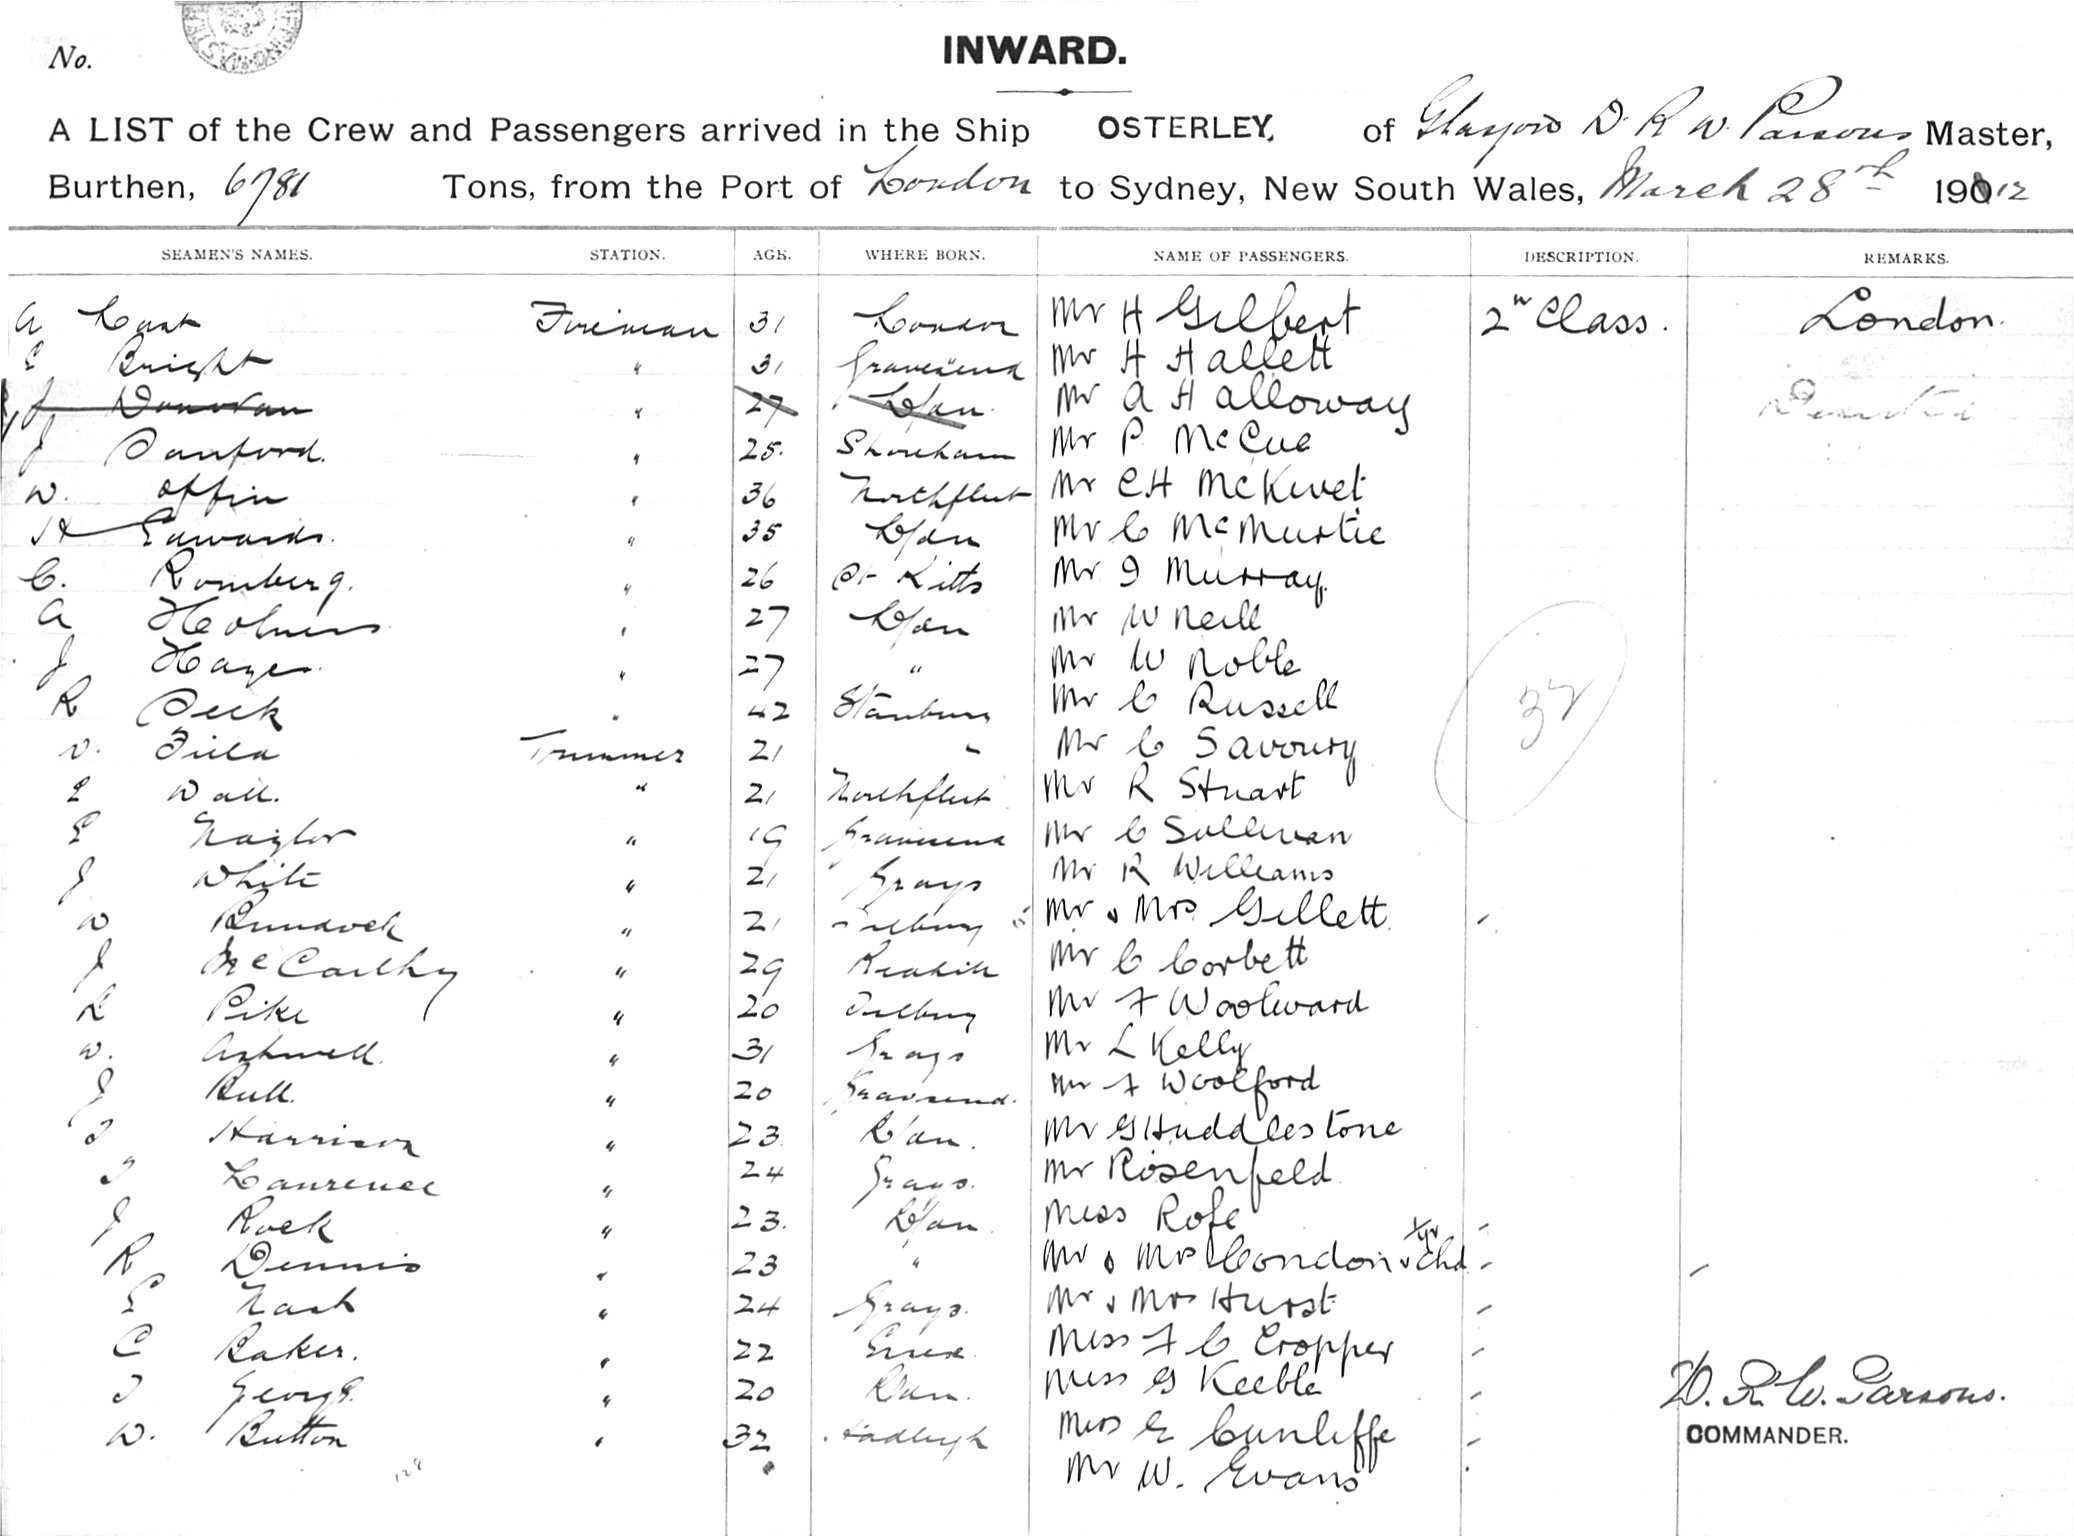 No.
INWARD.
A LIST of the Crew and Passengers arrived in the Ship OSTERLEY, of Glasgow D. R W. Parsons Master,
Burthen, 6781 Tons, from the Port of London to Sydney, New South Wales, March 28th 1912
SEAMEN'S NAMES. STATION. AGE. WHERE BORN. NAME OF PASSENGERS. DESCRIPTION. REMARKS.
A Fireman 31 London Mr H Gilbert 2n Class. London.
E Bright " 31 Gravesend Mr H Hallett
J Donovan " 27 L/don Mr A Halloway Deserted
J Sanford. " 25. Shoreham Mr P McCue
W. Offin " 36 Northfleet Mr C H McKivet
H Edwards. " 35 L/don Mr C McMurtie
C. Romberg. " 26 St Kitts Mr J Murray.
A Holmes " 27 L/don Mr W Neill
J Hayes. " 27 " Mr W Noble
R Peck " 42 Mr C Russell
V. Trimmer 21 " Mr C Savoury
E Wall. " 21 Northfleet Mr R Stuart
E Naylor " 19 Gravesend Mr C Sullivan
J White " 21 Grays Mr R Williams
W Bundock " 21 Tilbury Mr & Mrs Gillett "
J McCarthy " 29 Redhill Mr C Corbett
L Pike " 20 Tilbury Mr F Woolward
W. Ashwell. " 31 Grays Mr L Kelly
J Bull. " 20 Gravesend. Mr F Woolford
T Harrison " 23. L/don. Mr G Huddlestone
T Laurence " 24 Grays. Mr Rosenfeld
J Rock " 23. L/don Miss Rofe "
R Dennis " 23 " Mr & Mrs Condon & Chd "
E Nash " 24 Grays. Mr & Mrs Hurst "
C Baker. " 22 Essex Miss F C Cropper "
T George. " 20 L/don. Miss G Keeble "
W. Button " 32 Hadleigh Miss E Cunliffe "
Mr W. Evans
32
D. R. W. Parsons.
COMMANDER.